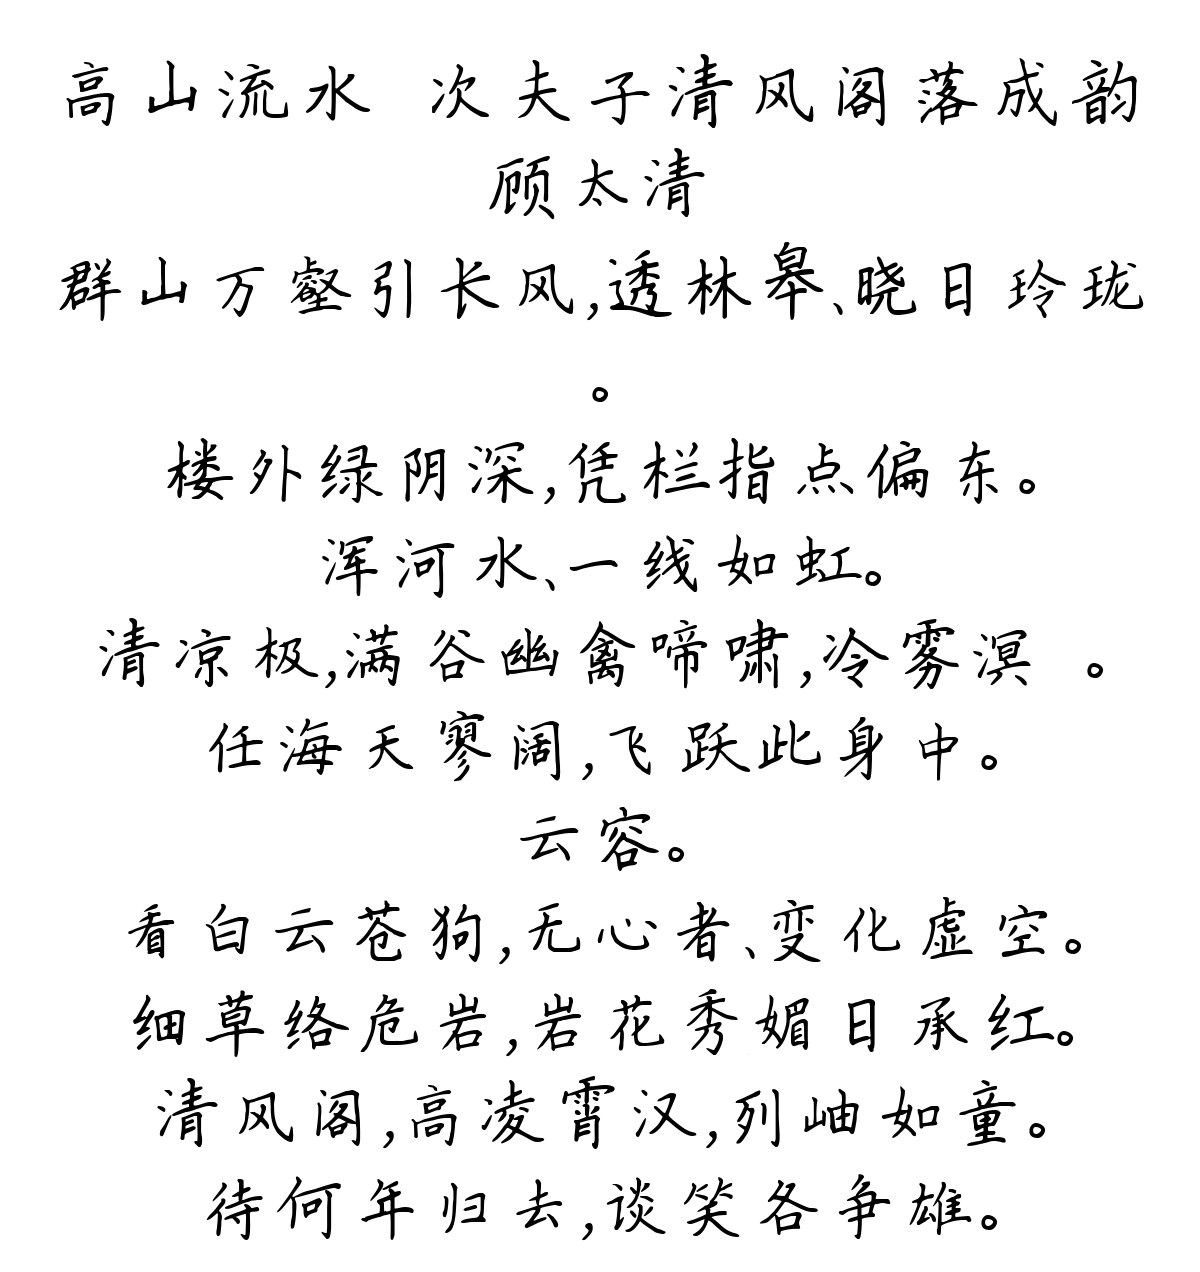 高山流水 次夫子清风阁落成韵
顾太清
群山万壑引长风,透林皋、晓日玲珑
。
楼外绿阴深,凭栏指点偏东。
浑河水、一线如虹。
清凉极,满谷幽禽啼啸,冷雾溟 。
任海天寥阔,飞跃此身中。
云容。
看白云苍狗,无心者、变化虚空。
细草络危岩,岩花秀媚日承红。
清风阁,高凌霄汉,列岫如童。
待何年归去,谈笑各争雄。